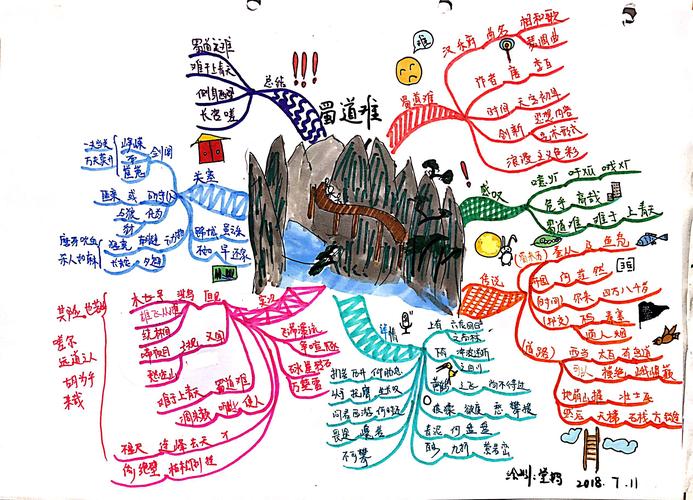 蜀道难
蜀道难
难
汉乐府
尚名
相和歌
琴调曲
作者
唐
李白
时间
天宝初年
创新
思想内容
艺术形式
浪漫主义色彩
感叹
噫吁
吁戏
危乎
高哉
蜀道难
难于
上青天
传说
蚕丛
及
鱼凫
开国
何
茫然
时间
尔来
四万八千
西当
太白
有鸟道
地崩山摧
壮士死
然后
天梯
石栈
方钩连
详情
上有
六龙回日
下有
冲波逆折
猿猱
欲度
愁
攀援
青泥
何
盘盘
百步
九折
萦岩峦
扪参
历井
仰胁息
以手
抚膺
坐长叹
问君西游
何时还
畏途
巉岩
不可攀
实况
但见
悲鸟
号古木
雄飞从雌
绕林间
又闻
子规
啼夜月
愁空山
难于上青天
蜀道难
凋朱颜
听此
使人
连峰去天
不盈尺
枯松倒挂
倚绝壁
飞湍瀑流
争喧豗
砯崖转石
万壑雷
其险也若此
嗟尔
远道之人
胡为乎
来哉
剑阁
峥嵘
而
崔嵬
一夫当关
万夫莫开
所守
或
匪亲
化为
狼与豺
朝避
猛虎
夕避
长蛇
磨牙吮血
杀人如麻
锦城
虽云乐
不如
早还家
总结
蜀道之难
难于上青天
侧身西望
长咨嗟
绘制:堂妈
2018.7.11